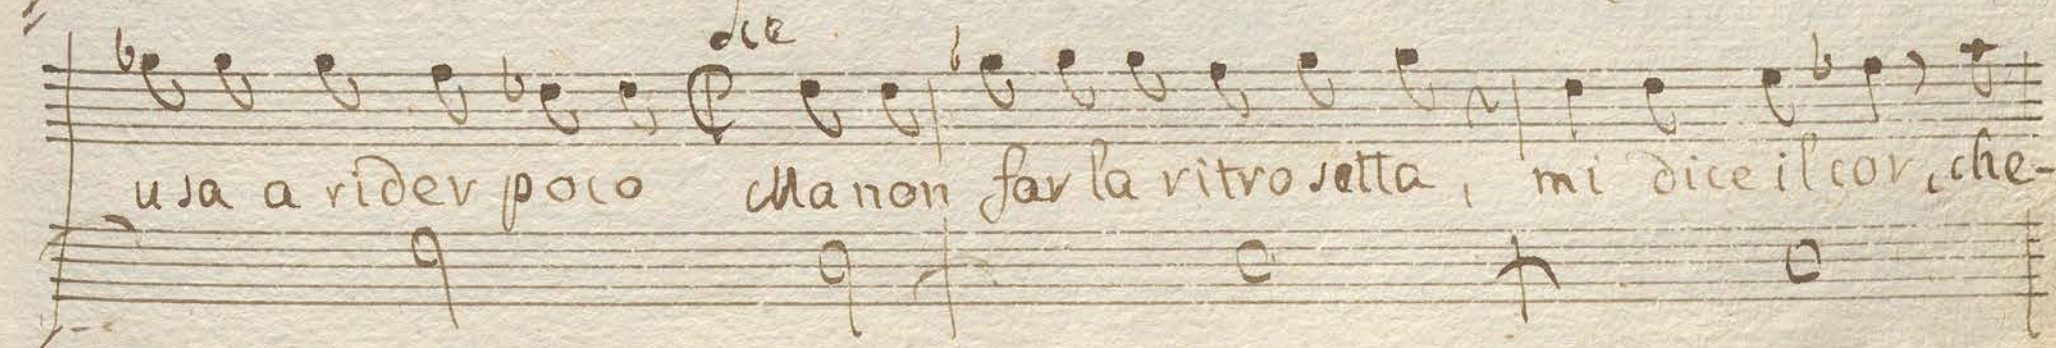 dice
usa a rider poco Ma non far la ritrosetta, mi dice il cor, che-